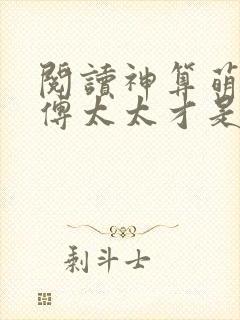 閱讀神算萌
傅太太才是
剩斗士